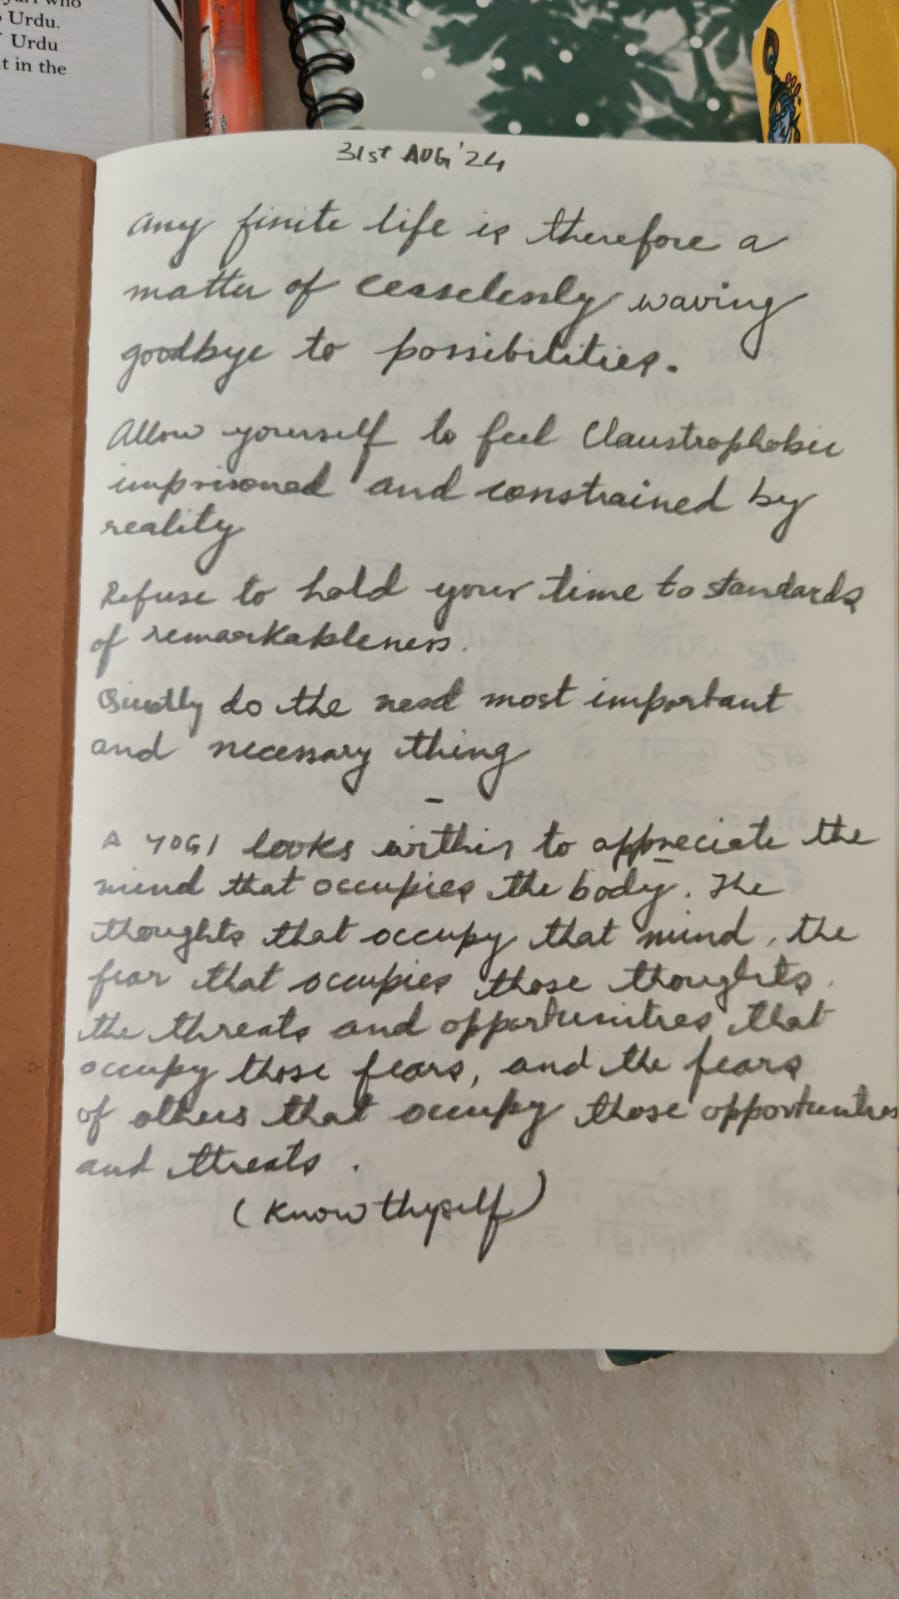 Urdu.
Urdu
t in the
31st AUG '24
Any finite life is therefore a
matter of ceaselessly waving
goodbye to possibilities.
Allow yourself to feel Claustrophobic
imprisoned and constrained by
reality
Refuse to hold your time to standards
of remarkableness.
Quietly do the next most important
and necessary thing
-
A YOGI looks within to appreciate the
mind that occupies the body. The
thoughts that occupy that mind, the
fear that occupies those thoughts,
the threats and opportunities that
occupy those fears, and the fears
of others that occupy those opportunities
and threats.
(Know thyself)